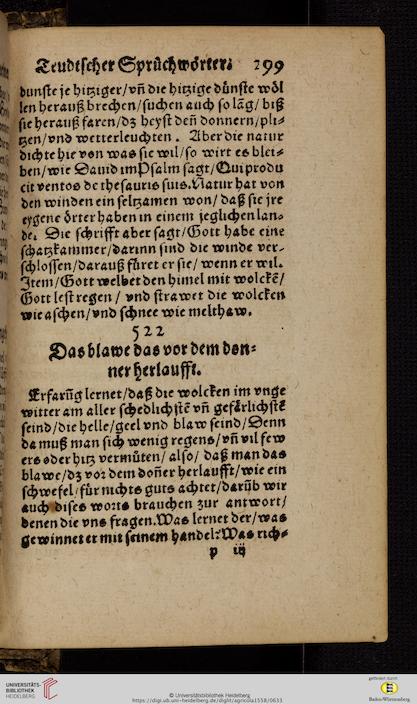 Teudtscher Sprüchwörter. 299
dünste je hitziger/vñ die hitzige dünste wöl
len herauß brechen/suchen auch so lãg/ biß
sie herauß faren/dz heyst deñ donnern/pli-
tzen/vnd wetterleuchten. Aber die natur
dichte hie von was sie wil/so wirt es blei-
ben/wie Dauid im Psalm sagt/Qui produ
cit ventos de thesauris suis. Natur hat von
den winden ein seltzamen won/daß sie jre
eygene örter haben in einem jeglichen lan-
de. Die schrifft aber sagt/Gott habe eine
schatzkammer/darinn sind die winde ver-
schlossen/darauß füret er sie/wenn er wil.
Item/Gott welbet den himel mit wolckẽ/
Gott lest regen / vnd strawet die wolcken
wie aschen/vnd schnee wie melthaw.
522
Das blawe das vor dem don-
ner herlaufft.
Erfarũg lernet/daß die wolcken im vnge
witter am aller schedlichstẽ vñ gefärlichstẽ
seind/die helle/geel vnd blaw seind/Denn
da muß man sich wenig regens/vñ vil few
ers oder hitz vermůten/also/ daß man das
blawe/dz vor dem doñer herlaufft/wie ein
schwefel/für nichts guts achtet/darũb wir
auch dises worts brauchen zur antwort/
denen die vns fragen. Was lernet der/was
gewinnet er mit seinem handel? Was rich-
p iij
UNIVERSITÄTS-
BIBLIOTHEK
HEIDELBERG
© Universitätsbibliothek Heidelberg
https://digi.ub.uni-heidelberg.de/diglit/agricola1558/0633
gefördert durch
Baden-Württemberg